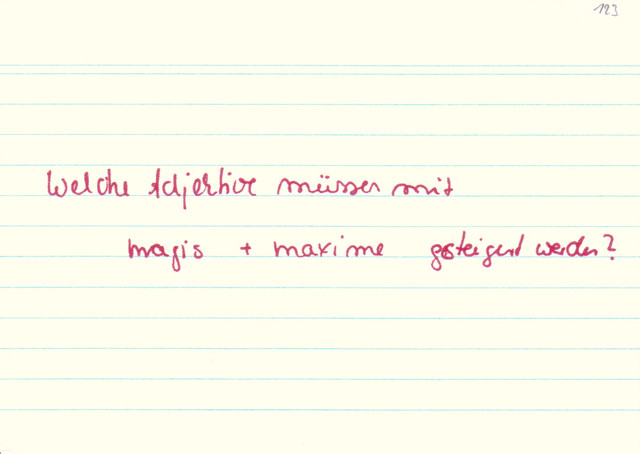 123
Welche Adjektive müssen mit
magis + maxime gesteigert werden?